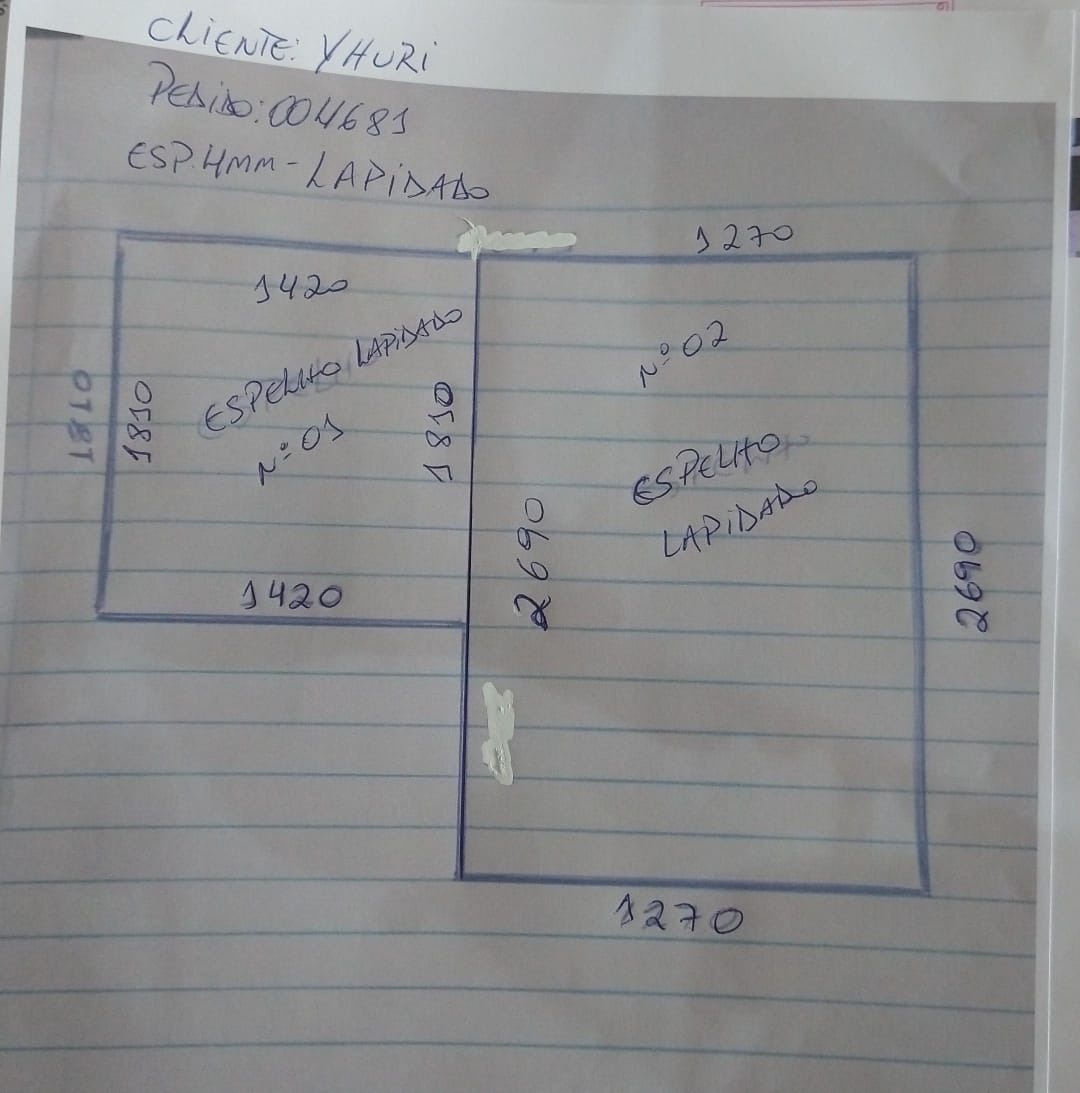 CLIENTE: YHURI
PEDIDO: 004681
ESP. 4MM - LAPIDADO
1270
1420
1810
1810
ESPELHO LAPIDADO
Nº 01
1810
1420
Nº 02
ESPELHO
LAPIDADO
2690
2690
1270